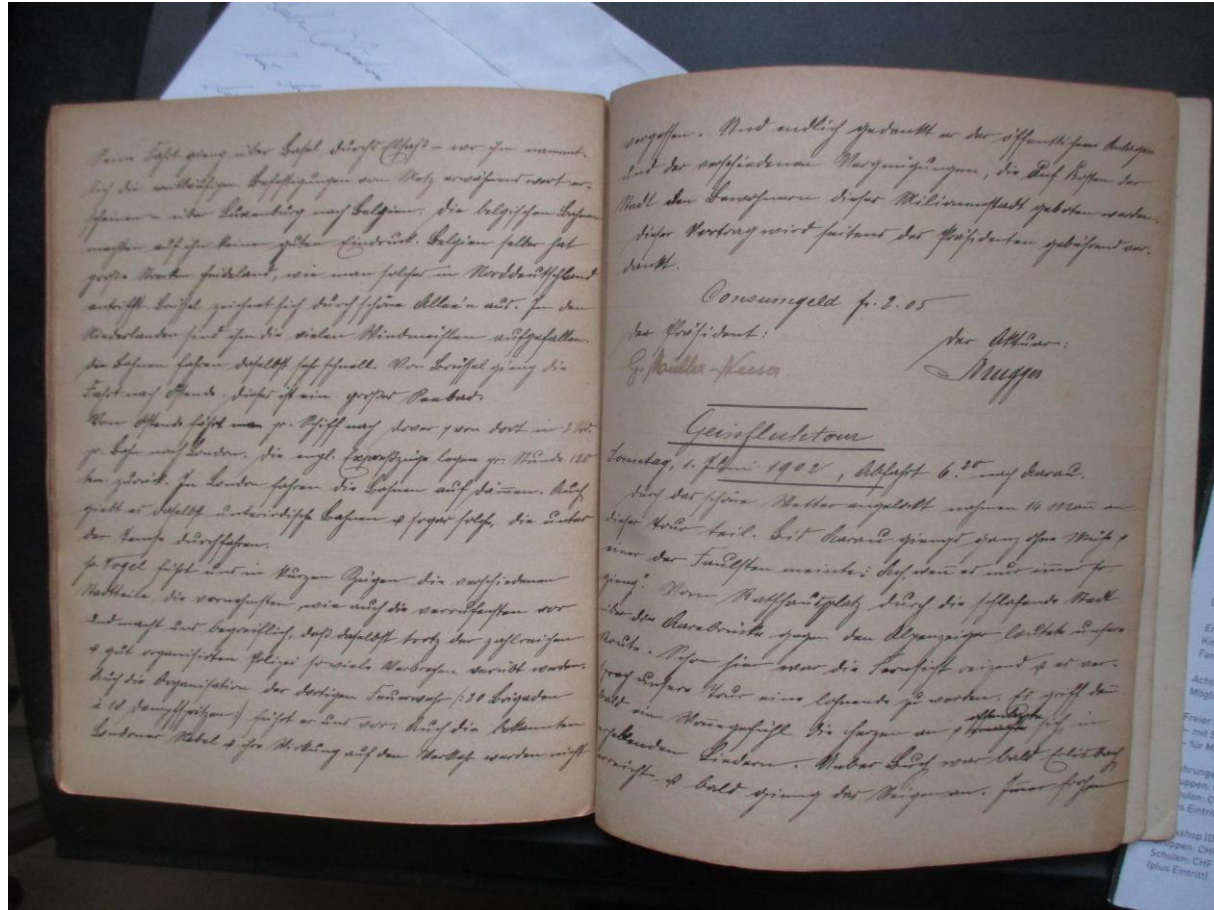 Seine Fahrt gieng über Basel durch's Elsaß – wo ihm nament-
lich die weitläufigen Befestigungen von Metz erwähnenswert er-
scheinen – über Luxenburg nach Belgien. Die belgischen Bahnen
machten auf ihn keinen guten Eindruck. Belgien selber hat
große Strecken Heideland, wie man solches in Norddeutschland
antrifft. Brüssel zeichnet sich durch schöne Alleen aus. In den
Niederlanden sind ihm die vielen Windmühlen aufgefallen.
Die Bahnen fahren daselbst sehr schnell. Von Brüssel gieng die
Fahrt nach Ostende. Dieses ist ein großes Seebad.
Von Ostende fährt man pr. Schiff nach Dover & von dort in 2 Std.
pr. Bahn nach London. Die engl. Expreßzüge legen pr. Stunde 120
km zurück. In London fahren die Bahnen auf Dämmen. Auch
giebt es daselbst unterirdische Bahnen & sogar solche, die unter
der Temse durchfahren.
Hr. Vogel führt uns in kurzen Zügen die verschiedenen
Stadtteile, die vornehmsten, wie auch die verrufensten vor
und macht uns begreiflich, daß daselbst trotz der zahlreichen
& gut organisirten Polizei so viele Verbrechen verübt werden.
Auch die Organisation der dortigen Feuerwehr (: 30 Brigaden
à 10 Dampfspritzen :) führt er uns vor. Auch die bekannten
Londoner Nebel & ihre Wirkung auf den Verkehr werden nicht
vergessen. Und endlich gedenkt er der öffentlichen Anlagen
und der verschiedenen Vergnügungen, die auf Kosten der
Stadt den Bewohnern dieser Millionenstadt geboten werden.
Dieser Vortrag wird seitens des Präsidenten gebührend ver-
dankt.
Consumgeld fr. 2.05
Der Präsident:
Der Aktuar:
G. Müller-
Brugger
Geisfluhtour
Sonntag, 1. Juni 1902, Abfahrt 6.20 nach Aarau.
Durch das schöne Wetter angelockt nahmen 14 Mann an
dieser Tour teil. Bis Aarau giengs ganz ohne Mühe &
einer der Faulsten meinte: Ach, wenn es nur immer so
gieng! Vom Rathausplatz durch die schlafende Stadt
über die Aarebrücke gegen den Alpenzeiger lautete unsere
Route. Schon hier war die Fernsicht reizend & es ver-
sprach unsere Tour eine lohnende zu werden. Es griff denn
bald ein Wonnegefühl die Herzen an & offenbarte sich in
erhebenden Liedern. Ueber Buch war bald Erlisbach
erreicht & bald gieng das Steigen an. Immer